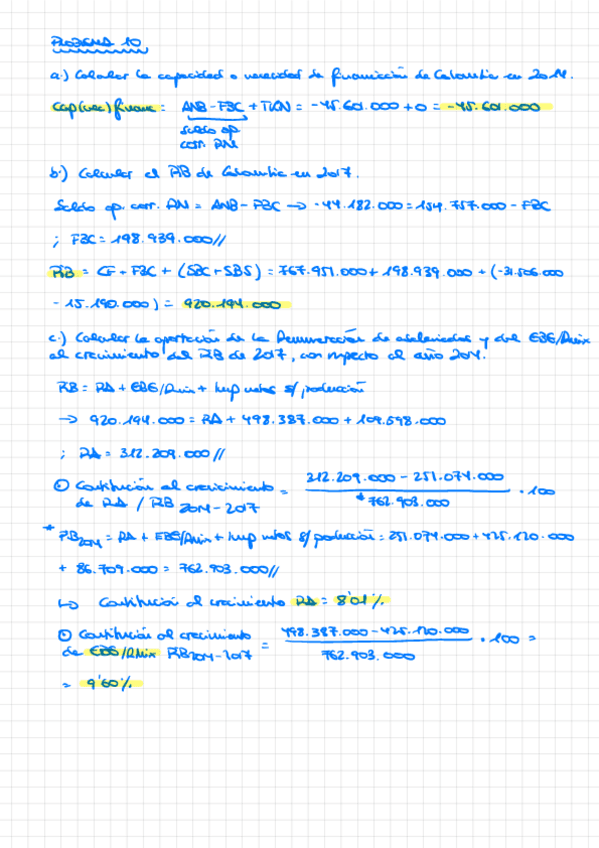 PROBLEMA 10
a.) Calcular la capacidad o necesidad de financiación de Colombia en 2014.
Cap(nec) financ = ANB - FBC + TKN = -45.601.000 + 0 = -45.601.000
saldo op.
corr. RM
b.) Calcular el PIB de Colombia en 2017.
Saldo op. corr. RM = ANB - FBC → -44.182.000 = 154.757.000 - FBC
; FBC = 198.939.000//
PIB = CF + FBC + (SBC + SBS) = 767.951.000 + 198.939.000 + (-31.506.000
- 15.190.000) = 920.194.000
c.) Calcular la aportación de la Remuneración de asalariados y del EBE/Rmix
al crecimiento del PIB de 2017, con respecto al año 2014.
PIB = RA + EBE/Rmix + Imp netos s/ producción
→ 920.194.000 = RA + 498.387.000 + 109.598.000
; RA = 312.209.000//
Contribución al crecimiento = 312.209.000 - 251.074.000 / *762.903.000 · 100
de RA / PIB 2014-2017
* PIB2014 = RA + EBE/Rmix + Imp netos s/ producción = 251.074.000 + 425.120.000
+ 86.709.000 = 762.903.000//
↳ Contribución al crecimiento RA = 8'01%
Contribución al crecimiento = 498.387.000 - 425.120.000 / 762.903.000 · 100 =
de EBE/RMix PIB2014-2017
= 9'60%